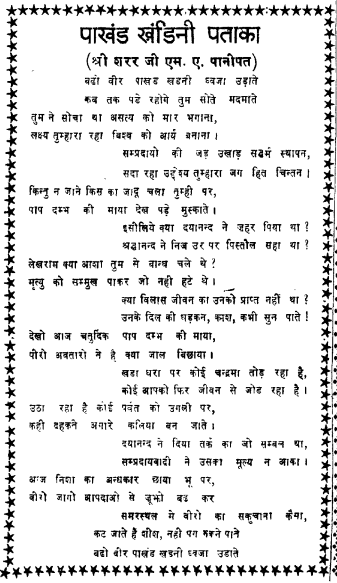 पाखंड खंडिनी पताका
(श्री शरर जी एम. ए. पानीपत)
बढो वीर पाखड खडनी ध्वजा उडाते
कब तक पडे रहोगे तुम सोते मदमाते
तुम ने सोचा था असत्य को मार भगाना,
लक्ष्य तुम्हारा रहा विश्व को आर्य बनाना।
सम्प्रदायो की जड उखाड सद्धर्म स्थापन,
सदा रहा उद्देश्य तुम्हारा जग हित चिन्तन।
किन्तु न जाने किस का जादू चला तुम्ही पर,
पाप दम्भ की माया देख पडे मुस्काते।
इसीलिये क्या दयानन्द ने जहर पिया था?
श्रद्धानन्द ने निज उर पर पिस्तौल सहा था?
लेखराम क्या आशा तुम से बान्ध चले थे?
मृत्यु को सम्मुख पाकर जो नही हटे थे।
क्या विलास जीवन का उनको प्राप्त नहीं था?
उनके दिल की धड़कन, काश, कभी सुन पाते!
देखो आज चतुर्दिक पाप दम्भ की माया,
पीरो अवतारो ने है क्या जाल बिछाया।
खडा धरा पर कोई चन्द्रमा तोड़ रहा है,
कोई आपको फिर जीवन से जोड रहा है।
उठा रहा है कोई पर्वत को उगली पर,
कही दहकने अगारे कलिया बन जाते।
दयानन्द ने दिया तर्क का जो सम्बल था,
सम्प्रदायवादी ने उसका मूल्य न आका।
आज निशा का अन्धकार छाया भू पर,
वीरो जागो आपदाओ से जूझो बढ कर
समरस्थल मे वीरो का सकुचाना कैसा,
कट जाते है शीश, नही पग रुकने पाते
बढो वीर पाखंड खडनी ध्वजा उडाते